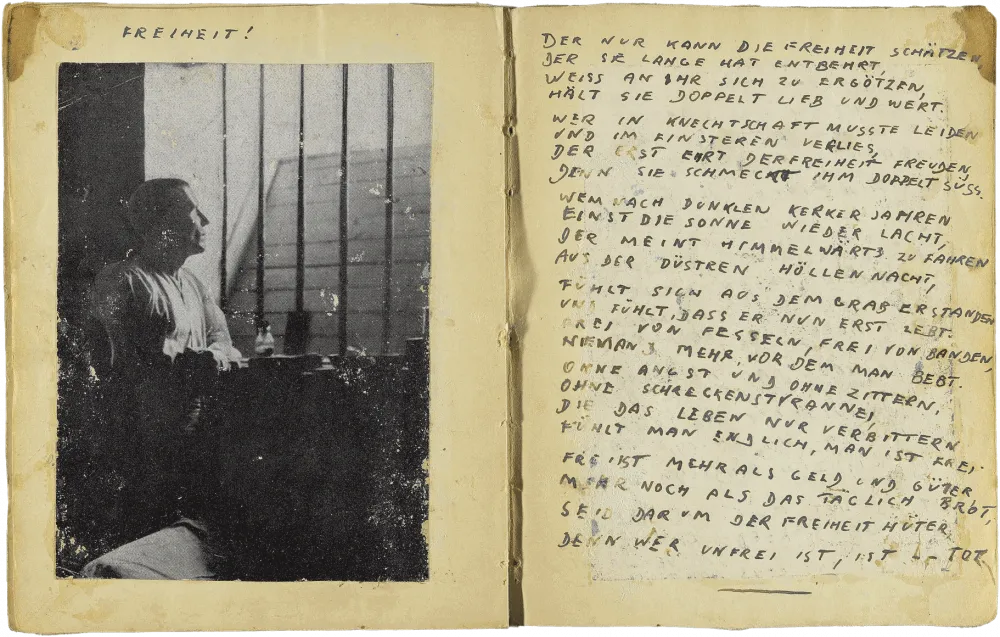 FREIHEIT!
DER NUR KANN DIE FREIHEIT SCHÄTZEN,
DER SIE LANGE HAT ENTBEHRT,
WEISS AN IHR SICH ZU ERGÖTZEN,
HÄLT SIE DOPPELT LIEB UND WERT.
WER IN KNECHTSCHAFT MUSSTE LEIDEN
UND IM FINSTEREN VERLIES,
DER ERST EHRT DER FREIHEIT FREUDEN,
DENN SIE SCHMECKT IHM DOPPELT SÜSS.
WEM NACH DUNKLEN KERKER JAHREN
EINST DIE SONNE WIEDER LACHT,
DER MEINT HIMMELWÄRTS ZU FAHREN
AUS DER DÜSTREN HÖLLEN NACHT,
FÜHLT SICH AUS DEM GRAB ERSTANDEN
UND FÜHLT, DASS ER NUN ERST LEBT.
FREI VON FESSELN, FREI VON BANDEN,
NIEMAND MEHR, VOR DEM MAN BEBT.
OHNE ANGST UND OHNE ZITTERN,
OHNE SCHRECKENSTYRANNEI,
DIE DAS LEBEN NUR VERBITTERN
FÜHLT MAN ENDLICH, MAN IST FREI.
FREI IST MEHR ALS GELD UND GÜTER
MEHR NOCH ALS DAS TÄGLICH BROT,
SEID DARUM DER FREIHEIT HÜTER
DENN WER UNFREI IST, IST -- TOT.